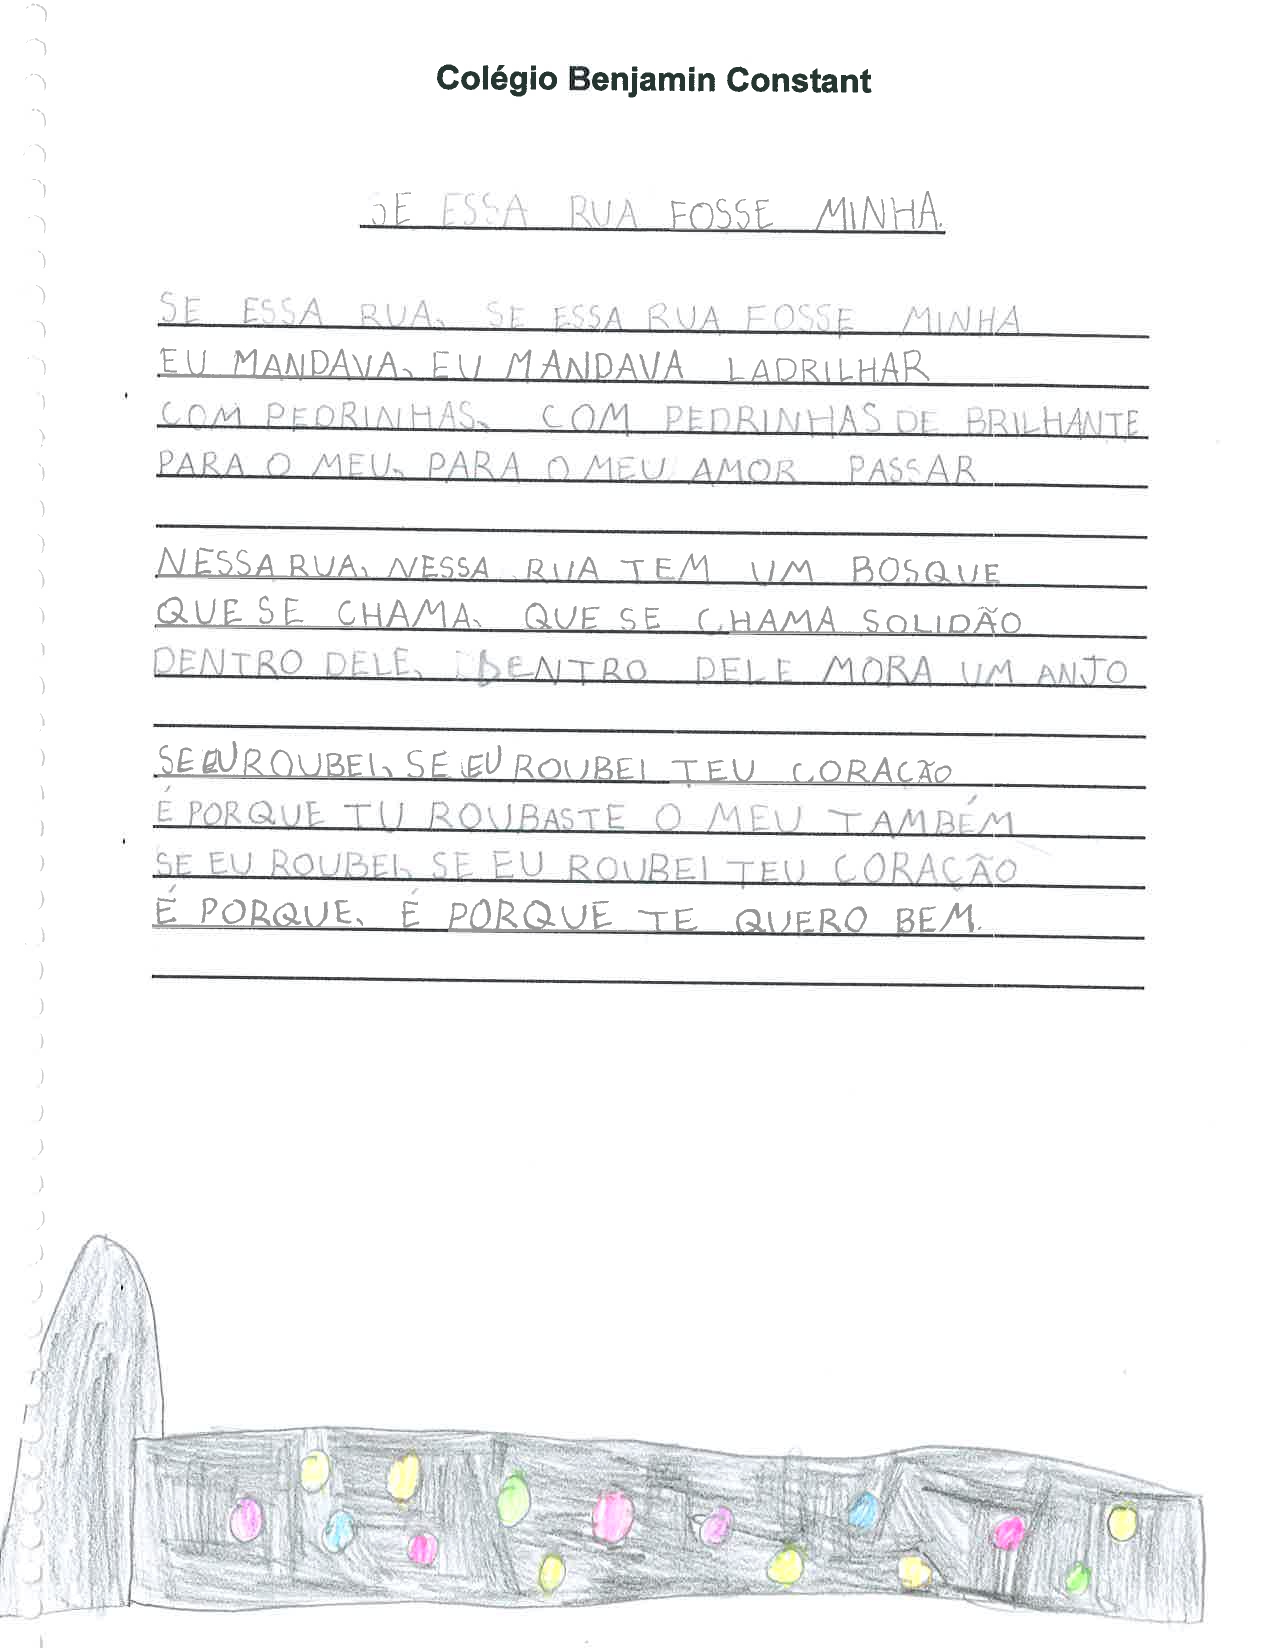 Colégio Benjamin Constant
SE ESSA RUA FOSSE MINHA.
SE ESSA RUA, SE ESSA RUA FOSSE MINHA
EU MANDAVA, EU MANDAVA LADRILHAR
COM PEDRINHAS, COM PEDRINHAS DE BRILHANTE
PARA O MEU, PARA O MEU AMOR PASSAR
NESSA RUA, NESSA RUA TEM UM BOSQUE
QUE SE CHAMA, QUE SE CHAMA SOLIDÃO
DENTRO DELE, DENTRO DELE MORA UM ANJO
SE EU ROUBEI, SE EU ROUBEI TEU CORAÇÃO
É PORQUE TU ROUBASTE O MEU TAMBÉM
SE EU ROUBEI, SE EU ROUBEI TEU CORAÇÃO
É PORQUE, É PORQUE TE QUERO BEM.